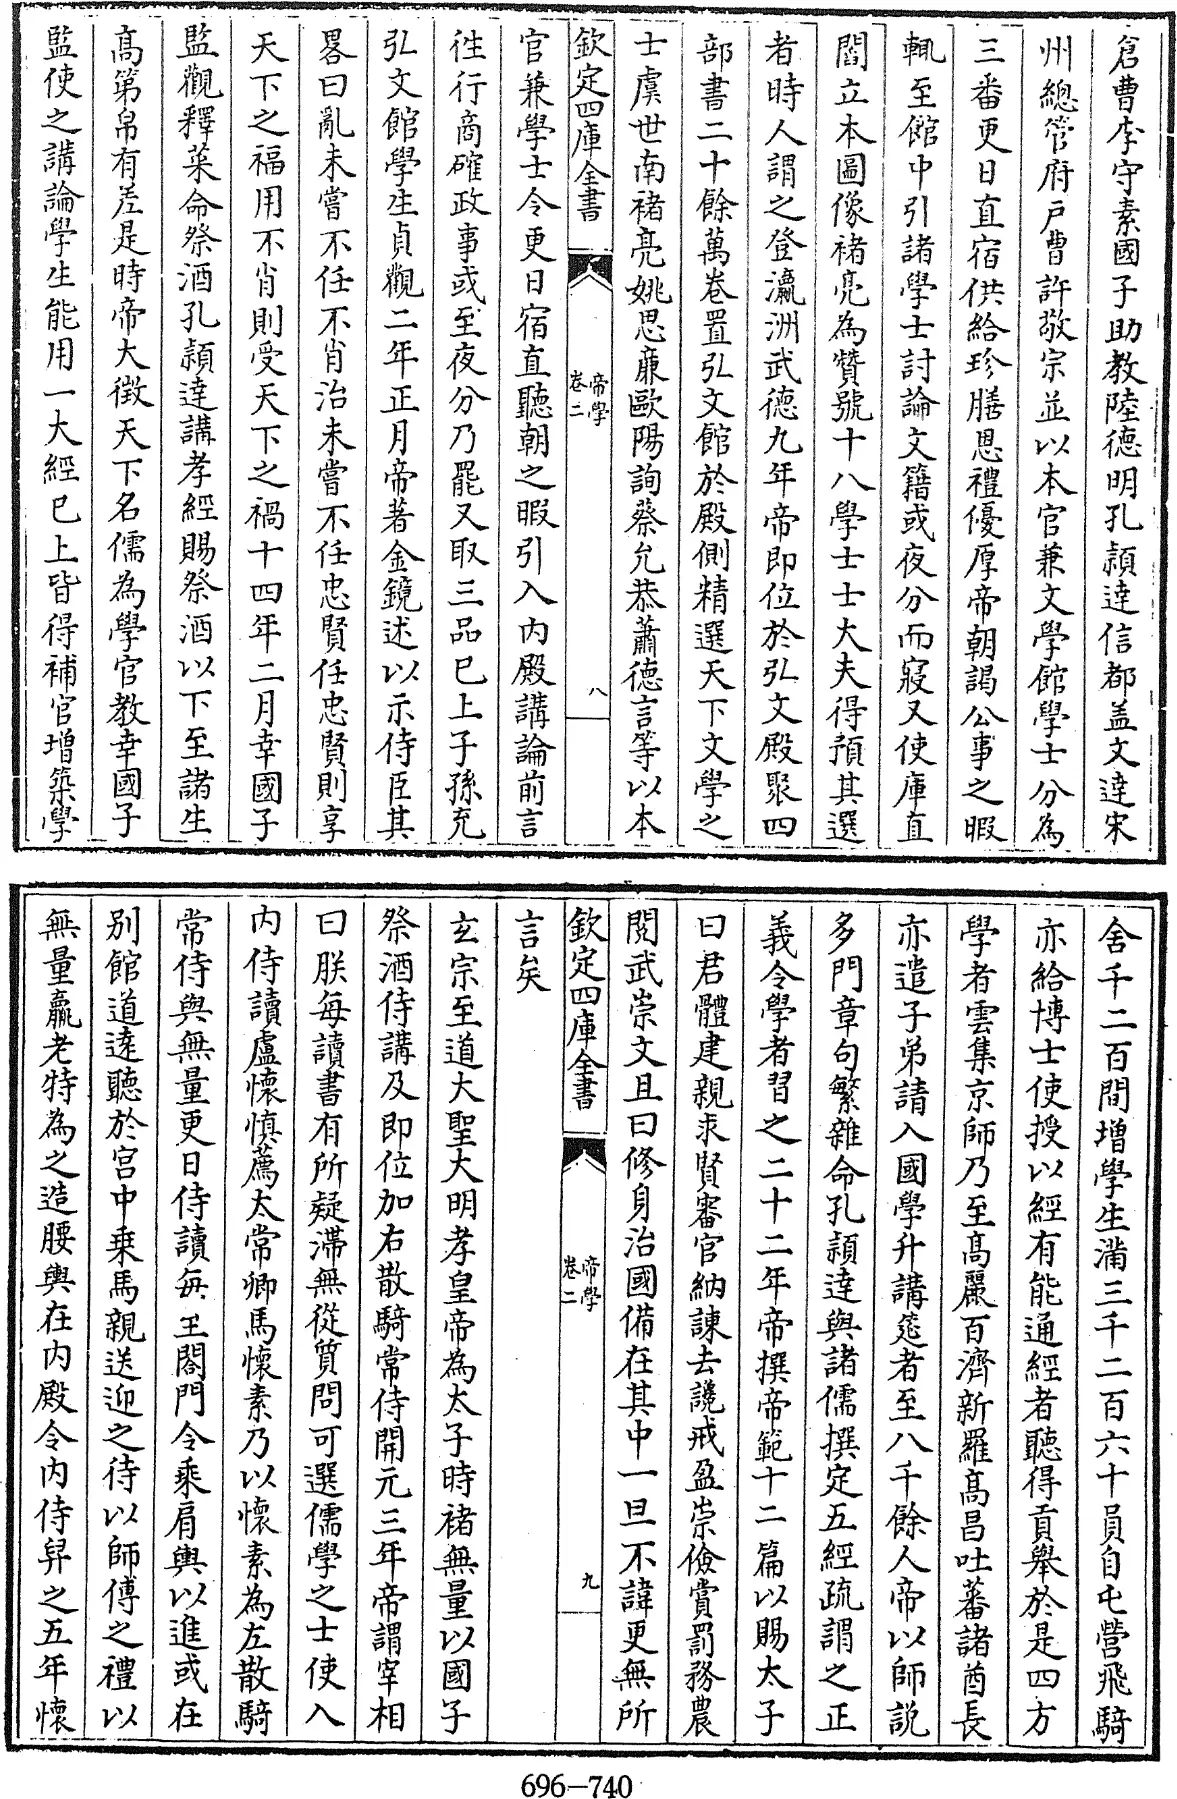 倉曹李守素國子助教陸德明孔頴逹信都盖文逹宋
州總管府戸曹許敬宗並以本官兼文學館學士分為
三番更日直宿供給珍膳恩禮優厚帝朝謁公事之暇
輒至館中引諸學士討論文籍或夜分而寢又使庫直
閻立本圖像褚亮為贊號十八學士士大夫得預其選
者時人謂之登瀛洲武德九年帝即位於弘文殿聚四
部書二十餘萬卷置弘文館於殿側精選天下文學之
士虞世南褚亮姚思廉歐陽詢蔡允恭蕭德言等以本
欽定四庫全書
帝學
卷二
八
官兼學士令更日宿直聽朝之暇引入内殿講論前言
徃行商確政事或至夜分乃罷又取三品已上子孫充
弘文館學生貞觀二年正月帝著金鏡述以示侍臣其
畧曰亂未嘗不任不肖治未嘗不任忠賢任忠賢則享
天下之福用不肖則受天下之禍十四年二月幸國子
監觀釋菜命祭酒孔頴逹講孝經賜祭酒以下至諸生
髙第帛有差是時帝大徵天下名儒為學官數幸國子
監使之講論學生能用一大經已上皆得補官增築學
舍千二百間增學生滿三千二百六十員自屯營飛騎
亦給博士使授以經有能通經者聽得貢舉於是四方
學者雲集京師乃至髙麗百濟新羅髙昌吐蕃諸酋長
亦遣子弟請入國學升講筵者至八千餘人帝以師說
多門章句繁雜命孔頴逹與諸儒撰定五經疏謂之正
義令學者習之二十二年帝撰帝範十二篇以賜太子
曰君體建親求賢審官納諫去讒戒盈崇儉賞罰務農
閱武崇文且曰修身治國備在其中一旦不諱更無所
欽定四庫全書
帝學
卷二
九
言矣
玄宗至道大聖大明孝皇帝為太子時褚無量以國子
祭酒侍講及即位加右散騎常侍開元三年帝謂宰相
曰朕每讀書有所疑滯無從質問可選儒學之士使入
内侍讀盧懷慎薦太常卿馬懷素乃以懷素為左散騎
常侍與無量更日侍讀每至閤門令乘肩輿以進或在
别館道逺聽於宫中乘馬親送迎之待以師傅之禮以
無量羸老特為之造腰輿在内殿令内侍舁之五年懷
696-740